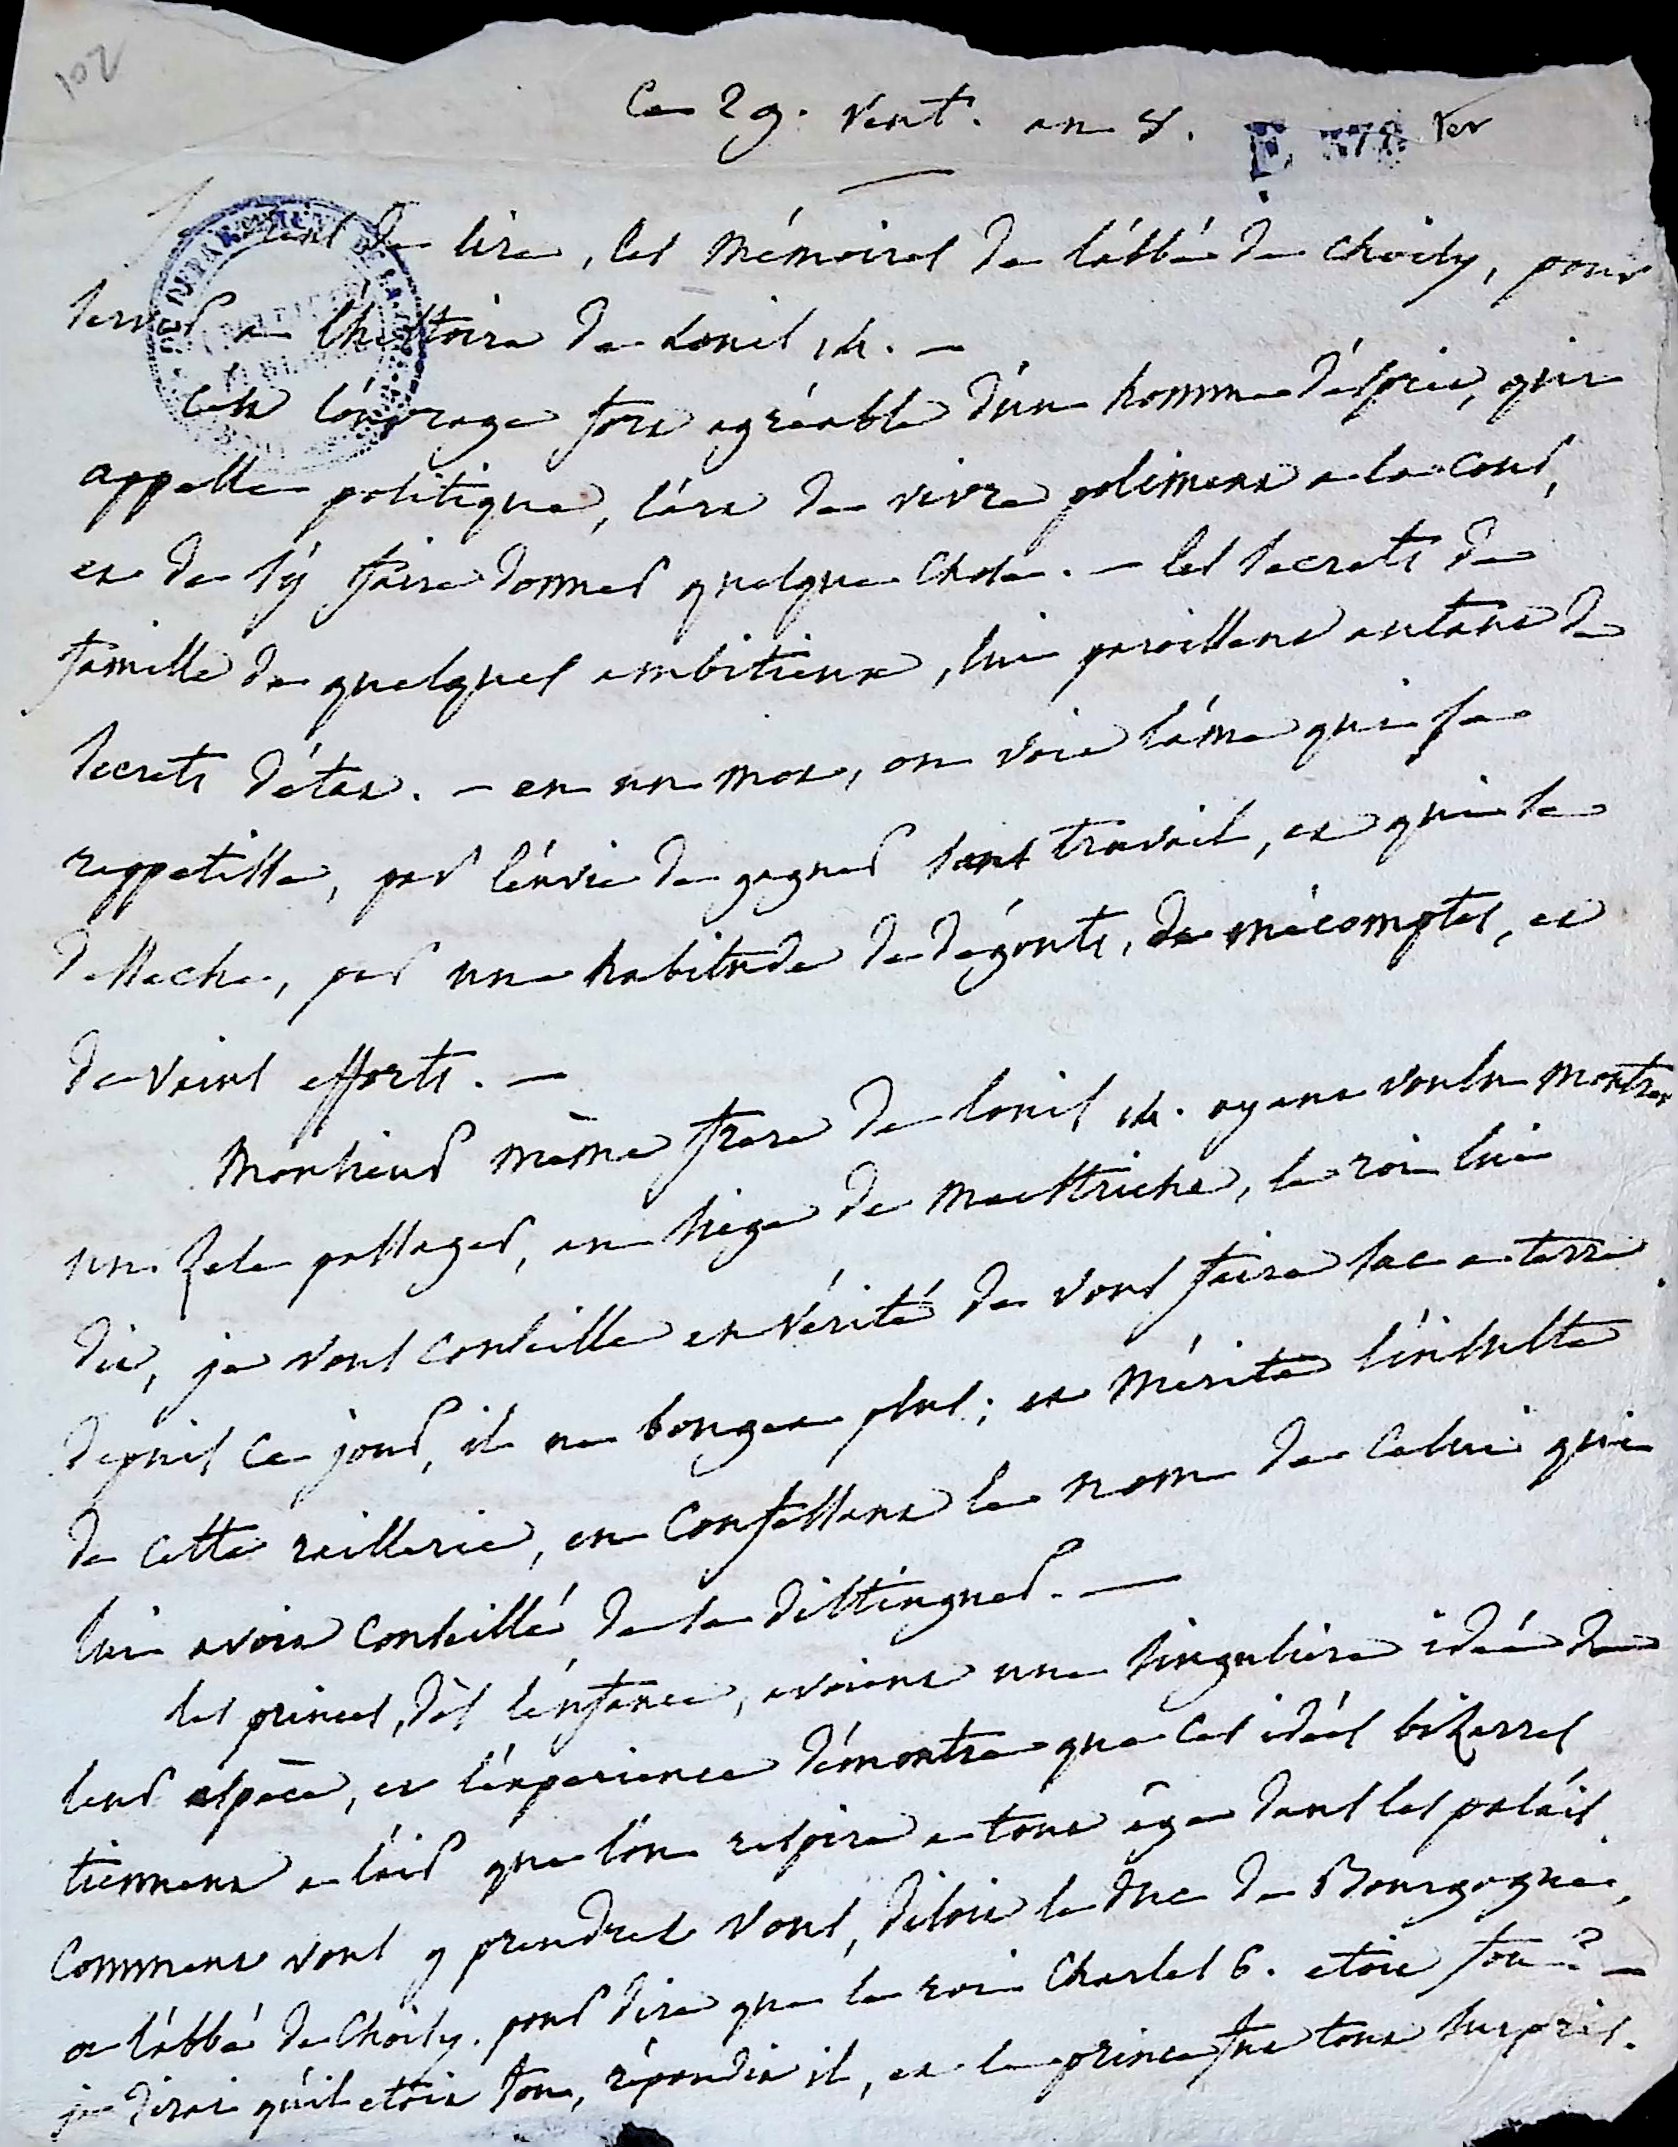 102
Ce 29. vent. an 8. F. 378 ter
viens de lire, les mémoires de l'abbé de choisy, pour
servir a l'histoire de Louis 14. —
C'est l'ouvrage fort agréable d'un homme d'esprit, qui
appelle politique, l'art de vivre poliment a la cour,
et de s'y faire donner quelque chose. — les secrets de
famille de quelques ambitieux, lui paroissent autant de
secrets d'état. — en un mot, on voit l'âme qui se
rappetisse, par l'envie de gagner sans travail, et qui se
desseche, par une habitude de dégouts, de mécomptes, et
de vains efforts. —
Monsieur même frere de louis 14. ayant voulu montrer
un zele passager, au siege de Maestricht, le roi lui
dit, je vous conseille en vérité de vous faire sac a terre.
depuis ce jour, il ne bougea plus; et mérita l'insulte
de cette raillerie, en confessant le nom de celui qui
lui avoit conseillé de se distinguer. —
les princes, dès l'enfance, avoient une singuliere idée de
leur espèce, et l'experience démontre que ces idées bizarres
tiennent a l'air que l'on respire a tout âge dans les palais.
Comment vous y prendrez vous, disoit le duc de Bourgogne,
a l'abbé de Choisy. pour dire que le roi Charles 6. etoit fou? —
je dirai qu'il etoit fou, répondit il, et le prince fut tout surpris.